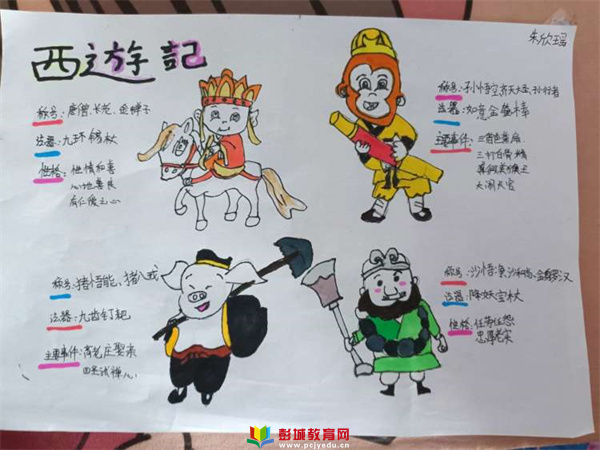 西遊記
朱欣瑶
称号:唐僧、长老、金蝉子
法器:九环锡杖
性格:性情和善
心地善良
有仁慈之心
称号:孙悟空、齐天大圣、孙行者
法器:如意金箍棒
主要事件:三借芭蕉扇
三打白骨精
真假美猴王
大闹天宫
称号:猪悟能、猪八戒
法器:九齿钉耙
主要事件:高老庄娶亲
四圣试禅心
称号:沙悟净、沙和尚、金身罗汉
法器:降妖宝杖
性格:任劳任怨
忠厚老实
彭城教育网
www.pcjyedu.cn